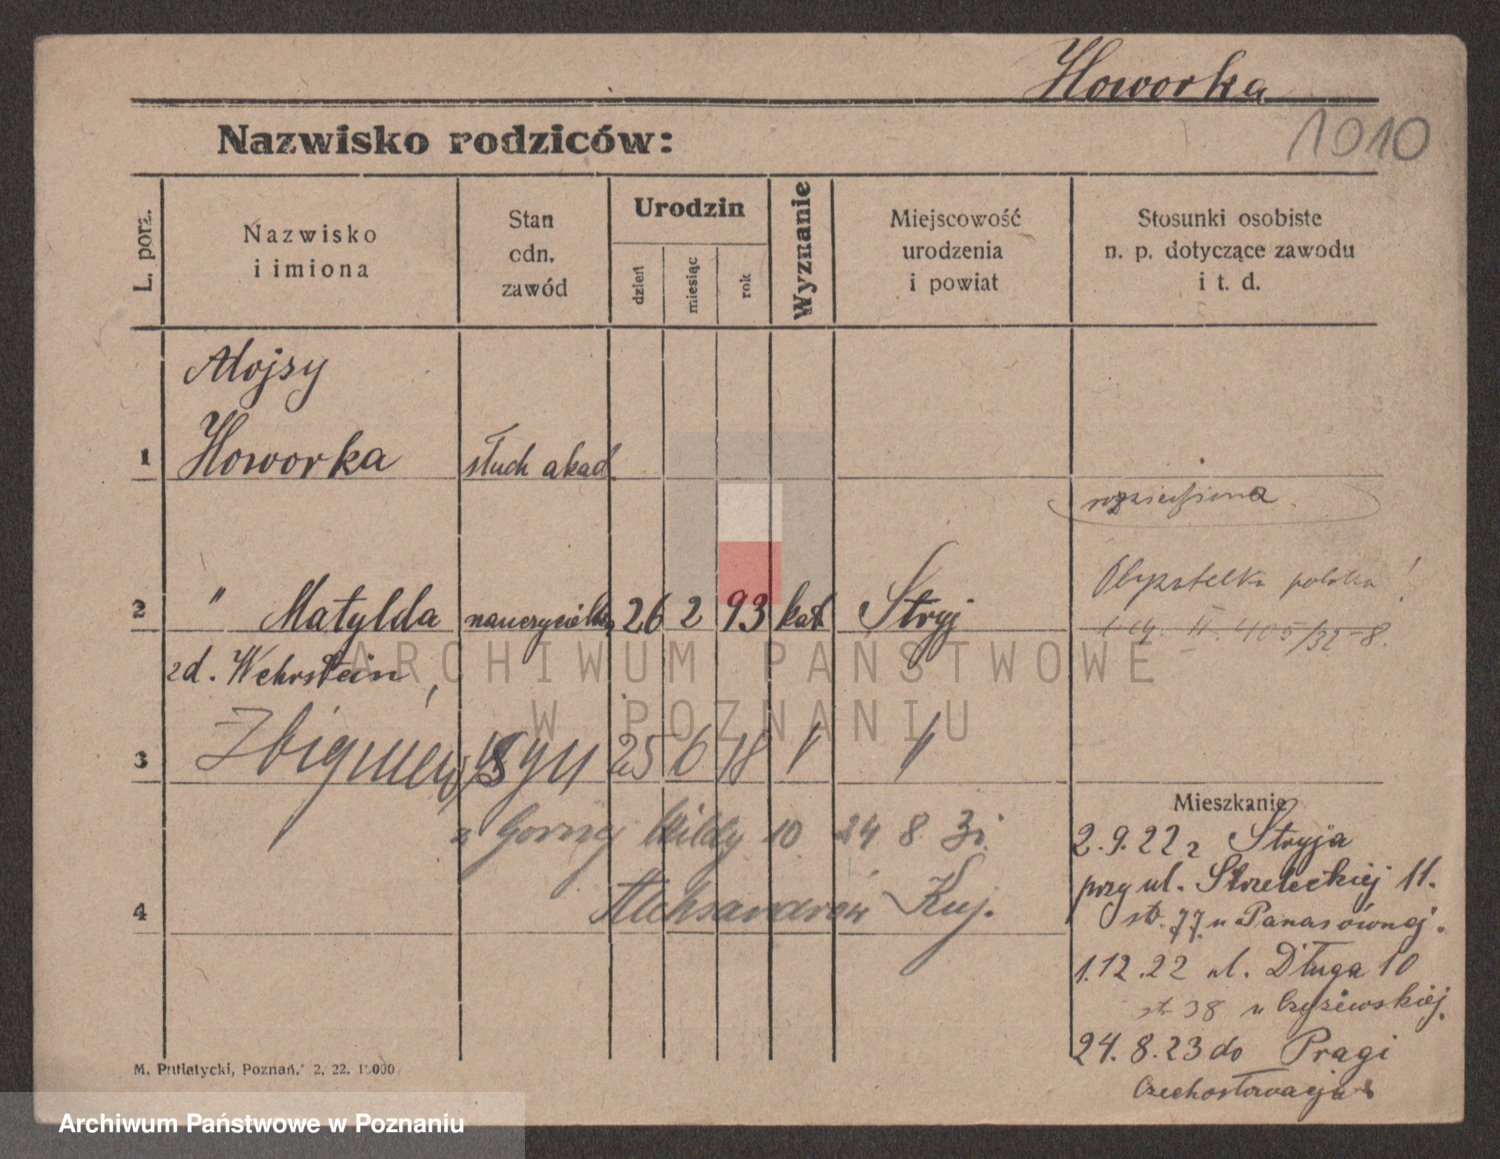 Howorka
1010
Nazwisko rodziców:
L. porz.
Nazwisko
i imiona
Stan
odn.
zawód
Urodzin
dzień
miesiąc
rok
Wyznanie
Miejscowość
urodzenia
i powiat
Stosunki osobiste
n. p. dotyczące zawodu
i t. d.
Alojsy
1 Howorka słuch akad.
2 " Matylda nauczycielka 26 2 93 kat Stryj
Obywatelka polska!
II. 405/32-8.
zd. Wehrstein,
3 Zbigniew syn 25 6 18
Mieszkanie
z Gorney Wildy 10 24 8 3
4 Aleksandrów Kuj.
2.9.22 z Stryja
przy ul. Strzeleckiej 11.
st. 77 u Panasównej.
1.12.22 ul. Długa 10
st 38 u Czyżewskiej.
24.8.23 do Pragi
Czechosłowacja
M. Putiatycki, Poznań. 2. 22. 1.000
ARCHIWUM PAŃSTWOWE
W POZNANIU
Archiwum Państwowe w Poznaniu